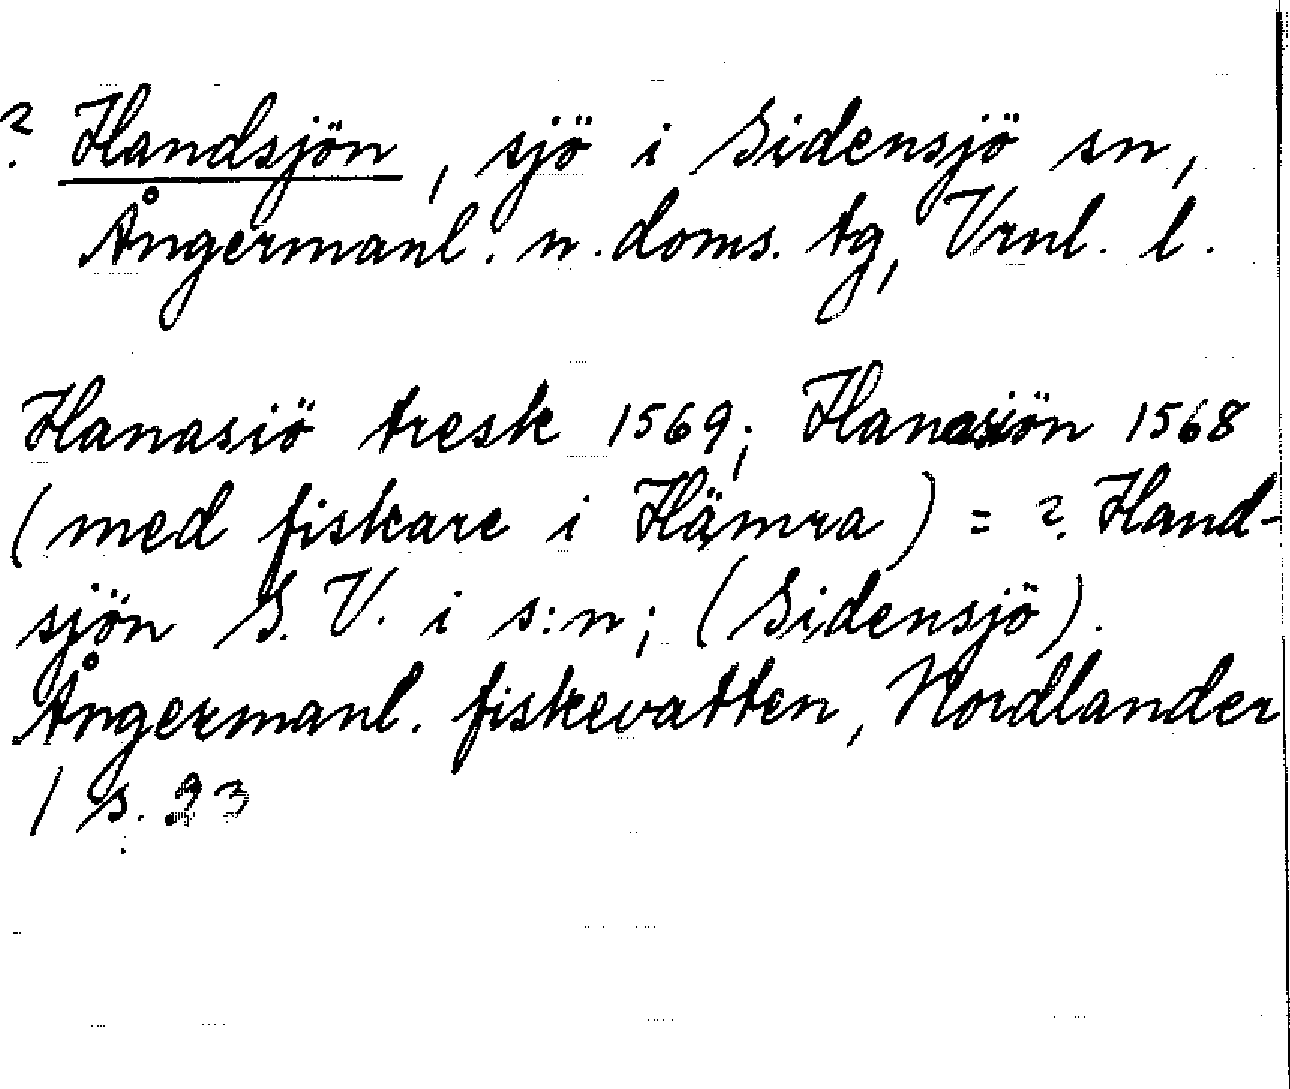 ? Handsjön, sjö i Sidensjö sn,
Ångermanl. n. doms. tg, Vrnl. l.
Hanasiö tresk 1569; Hanasiön 1568
(med fiskare i Hämra) = ? Hand-
sjön S. V. i s:n; (Sidensjö).
Ångermanl. fiskevatten, Nordlander
/ s. 23